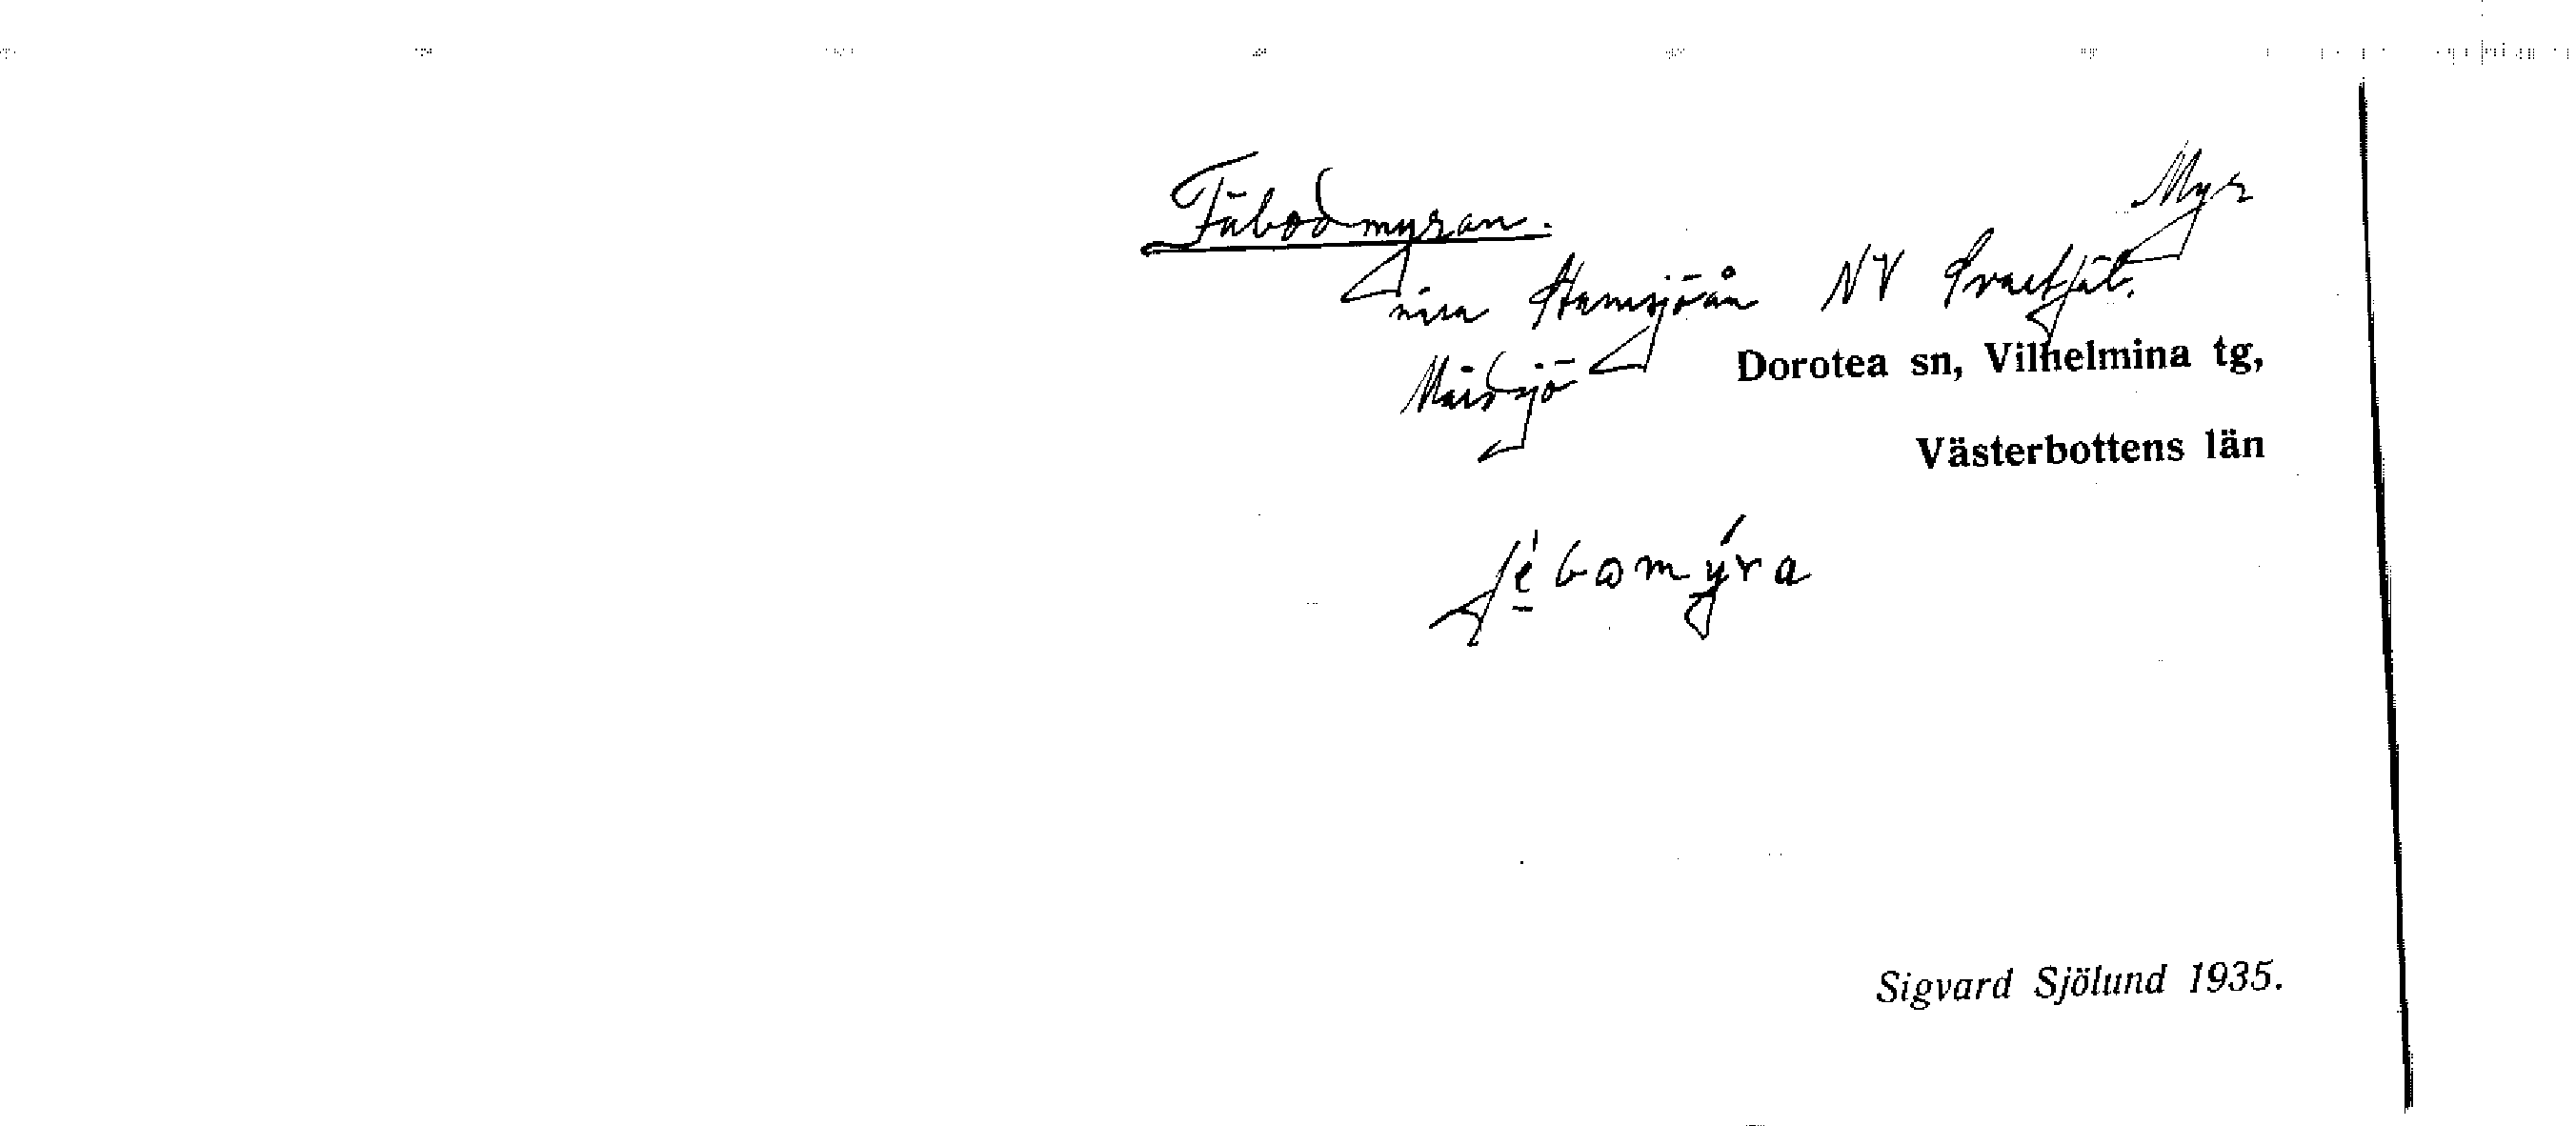 Fäbodmyran. Myr
nära Stamsjöån NV Svartfäb.
Mårdsjö Dorotea sn, Vilhelmina tg,
Västerbottens län
Sigvard Sjölund 1935.